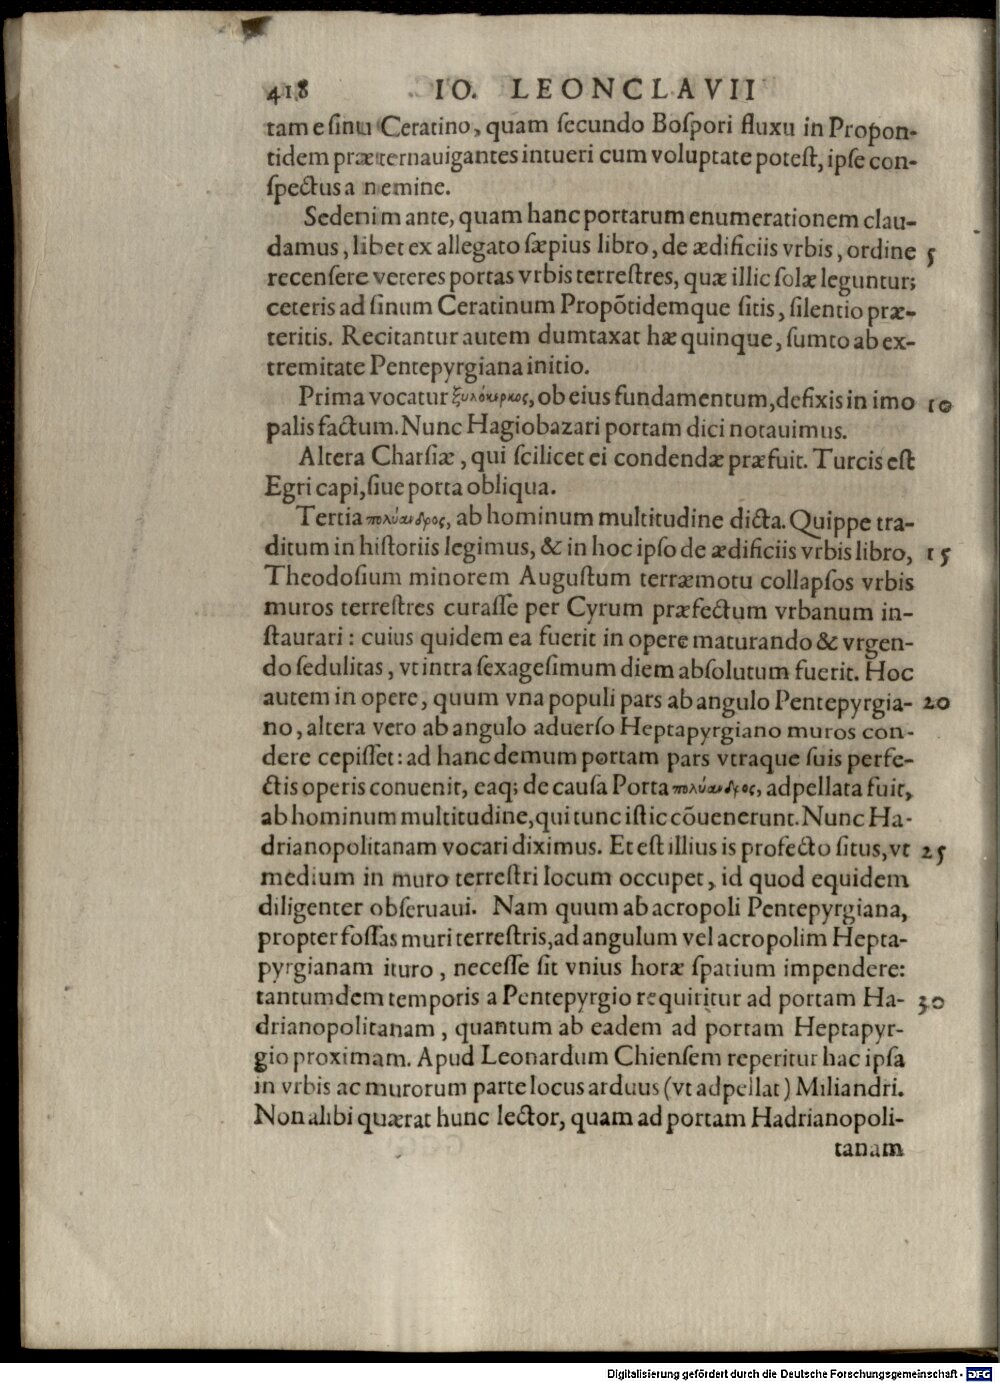 418 IO. LEONCLAVII
tam e ſinu Ceratino, quam ſecundo Boſpori fluxu in Propon-
tidem præternauigantes intueri cum voluptate poteſt, ipſe con-
ſpectus a nemine.
Sed enim ante, quam hanc portarum enumerationem clau-
damus, libet ex allegato ſæpius libro, de ædificiis vrbis, ordine 5
recenſere veteres portas vrbis terreſtres, quæ illic ſolæ leguntur;
ceteris ad ſinum Ceratinum Propōtidemque ſitis, ſilentio præ-
teritis. Recitantur autem dumtaxat hæ quinque, ſumto ab ex-
tremitate Pentepyrgiana initio.
Prima vocatur ξυλόκερκος, ob eius fundamentum, defixis in imo 10
palis factum. Nunc Hagiobazari portam dici notauimus.
Altera Charſiæ, qui ſcilicet ei condendæ præfuit. Turcis eſt
Egri capi, ſiue porta obliqua.
Tertia πολύανδρος, ab hominum multitudine dicta. Quippe tra-
ditum in hiſtoriis legimus, & in hoc ipſo de ædificiis vrbis libro, 15
Theodoſium minorem Auguſtum terræmotu collapſos vrbis
muros terreſtres curaſſe per Cyrum præfectum vrbanum in-
ſtaurari: cuius quidem ea fuerit in opere maturando & vrgen-
do ſedulitas, vt intra ſexageſimum diem abſolutum fuerit. Hoc
autem in opere, quum vna populi pars ab angulo Pentepyrgia- 20
no, altera vero ab angulo aduerſo Heptapyrgiano muros con-
dere cepiſſet: ad hanc demum portam pars vtraque ſuis perfe-
ctis operis conuenit, eaq; de cauſa Porta πολύανδρος, adpellata fuit,
ab hominum multitudine, qui tunc iſtic cōuenerunt. Nunc Ha-
drianopolitanam vocari diximus. Et eſt illius is profecto ſitus, vt 25
medium in muro terreſtri locum occupet, id quod equidem
diligenter obſeruaui. Nam quum ab acropoli Pentepyrgiana,
propter foſſas muri terreſtris, ad angulum vel acropolim Hepta-
pyrgianam ituro, neceſſe ſit vnius horæ ſpatium impendere:
tantumdem temporis a Pentepyrgio requiritur ad portam Ha- 30
drianopolitanam, quantum ab eadem ad portam Heptapyr-
gio proximam. Apud Leonardum Chienſem reperitur hac ipſa
in vrbis ac murorum parte locus arduus (vt adpellat) Miliandri.
Non alibi quærat hunc lector, quam ad portam Hadrianopoli-
tanam
Digitalisierung gefördert durch die Deutsche Forschungsgemeinschaft - DFG